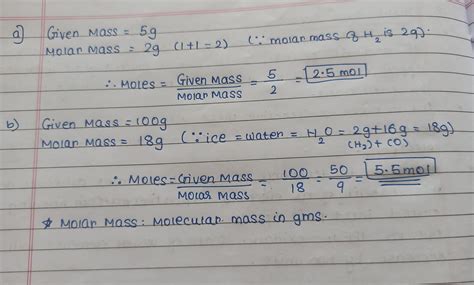 a) Given Mass = 5g
Molar Mass = 2g (1+1=2) (∵ molar mass of H2 is 2g).
∴ Moles = Given Mass / Molar Mass = 5/2 = 2.5 mol
b) Given Mass = 100g
Molar Mass = 18g (∵ ice = water = H2O = 2g+16g = 18g)
(H2) + (O)
∴ Moles = Given Mass / Molar Mass = 100/18 = 50/9 = 5.5 mol
* Molar Mass: Molecular mass in gms.